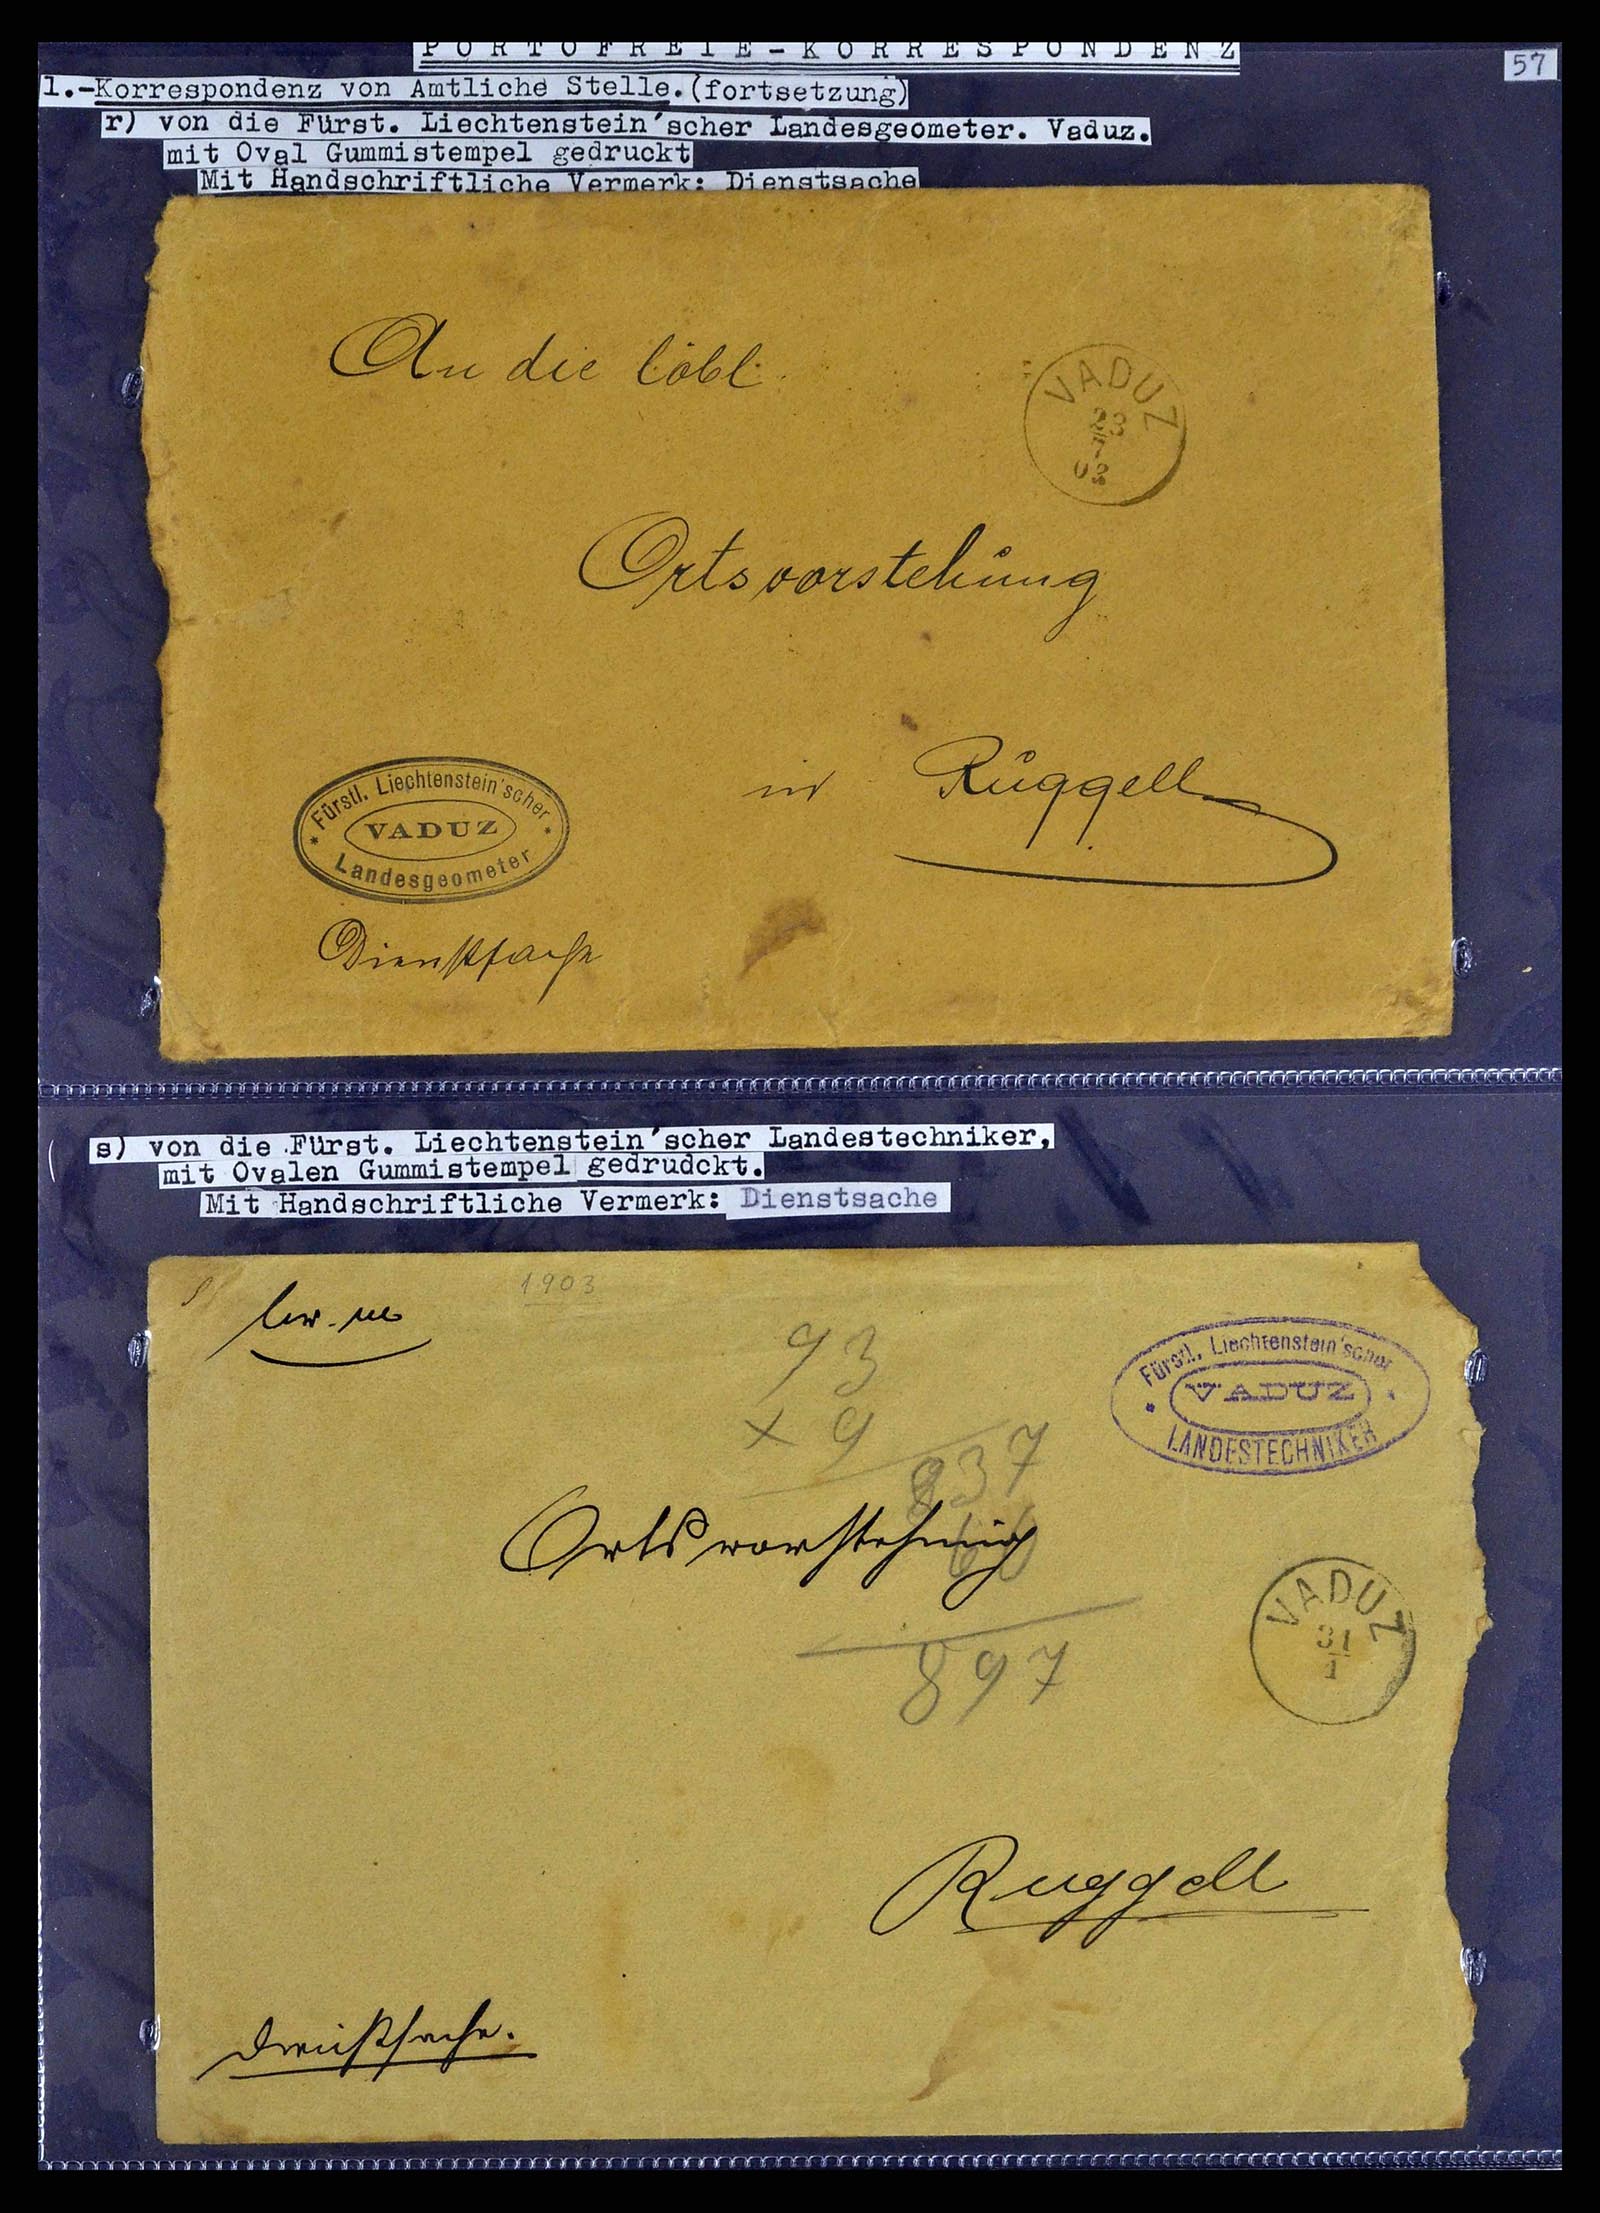 PORTOFREIE-KORRESPONDENZ
57
1.-Korrespondenz von Amtliche Stelle.(fortsetzung)
r) von die Fürst. Liechtenstein'scher Landesgeometer. Vaduz.
mit Oval Gummistempel gedruckt
Mit Handschriftliche Vermerk: Dienstsache
An die löbl.
VADUZ
23
03
Ortsvorstehung
in Ruggell
Fürstl. Liechtenstein'scher
VADUZ
Landesgeometer
Dienstsache
s) von die Fürst. Liechtenstein'scher Landestechniker,
mit Ovalen Gummistempel gedrudckt.
Mit Handschriftliche Vermerk: Dienstsache
1903
93
x 9
837
60
897
Fürstl. Liechtenstein'scher
VADUZ
LANDESTECHNIKER
Ortsvorstehung
VADUZ
31
Ruggell
Dienstsache.